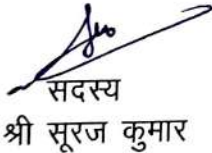 सदस्य
श्री सूरज कुमार